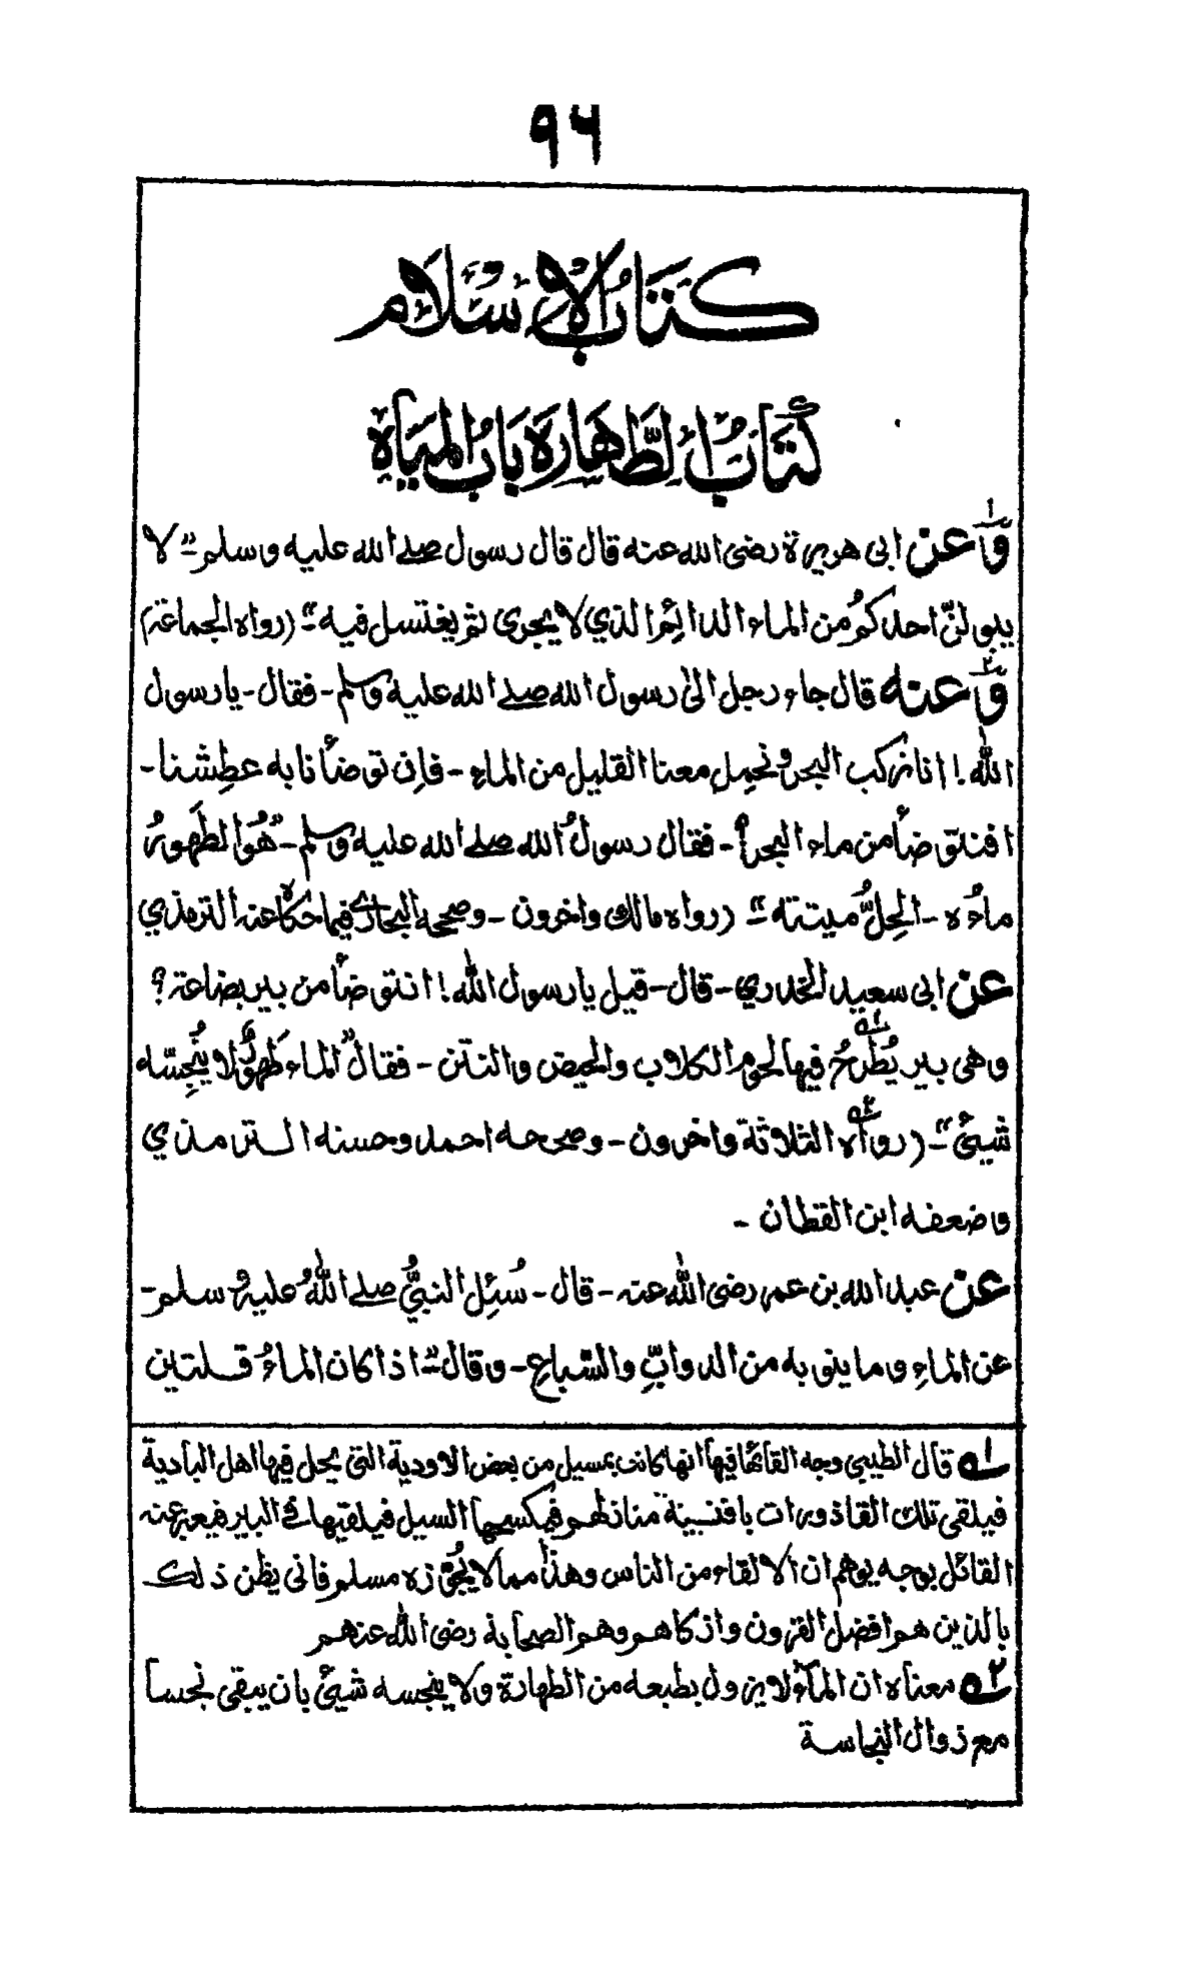 ٩٦
كتابُ الإسلام
كتابُ الطَّهارة بابُ المياه
١ وعن ابى هريرة رضى الله عنه قال قال رسول الله صلے الله عليه وسلم "لا
يبولنّ احدكمُ من الماء الدائم الذي لا يجرى ثم يغتسل فيه" (رواه الجماعة)
٢ وعنه قال جاء رجل الىٰ رسول الله صلے الله عليه وسلم - فقال - يا رسول
الله! انا نركب البحر ونحمِل معنا القليل من الماءِ - فاِن توضأنا به عطِشنا -
افنتوضأ من ماء البحر؟ - فقال رسولُ الله صلے الله عليه وسلم - "هُوَ الطَهورُ
ماءُه - الحِلُّ ميتته" (رواه مالك واخرون - وصححه البخاري فيما حكاه عنه الترمذي
عن ابى سعيد الخدري - قال - قيل يا رسول الله! انتوضأ من بير بضاعة؟
وهى بير يُطرَحُ ١ه فيها لحوم الكلاب والحيض والنتن - فقال "الماء طَهورٌ لا يُنجِسّه
شيئٌ" - (رواه ٢ه الثلاثة واخرون - وصححه احمد وحسنه الترمذي
وضعفه ابن القطان -
عن عبد الله بن عمر رضى الله عنه - قال - سُئِل النبيُّ صلے اللهُ عليه وسلم -
عن الماءِ وما ينوبه من الدوابِّ والسّباعِ - وقال "اذا كان الماءُ قلتين
١ه قال الطيبي وجه القائها فيها انها كانت بمسيل من بعض الاودية التى يحل فيها اهل البادية
فيلقى تلك القاذورات بافنية منازلهم فيكسحها السيل فيلقيها فے البير فيعبر عنه
القائل بوجه يوهم ان الالقاء من الناس وهذا مما لا يُجوّزه مسلم فانى يظن ذلك
بالذين هم افضل القرون وازكاهم وهم الصحابة رضى الله عنهم
٢ه معناه ان المآء لا يزول بطبعه من الطهارة ولا ينجسه شيئ بان يبقى نجسا
مع زوال النجاسة